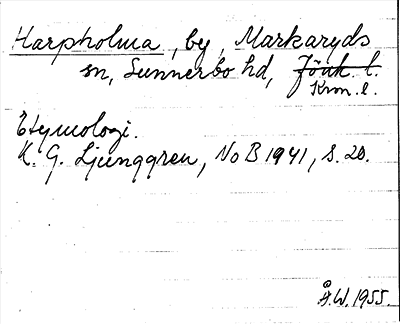 Harpholma, by, Markaryds
sn, Sunnerbo hd, Jönk. l.
Kron. l.
Etymologi.
K. G. Ljunggren, NoB 1941, s. 20.
Å.W. 1955.